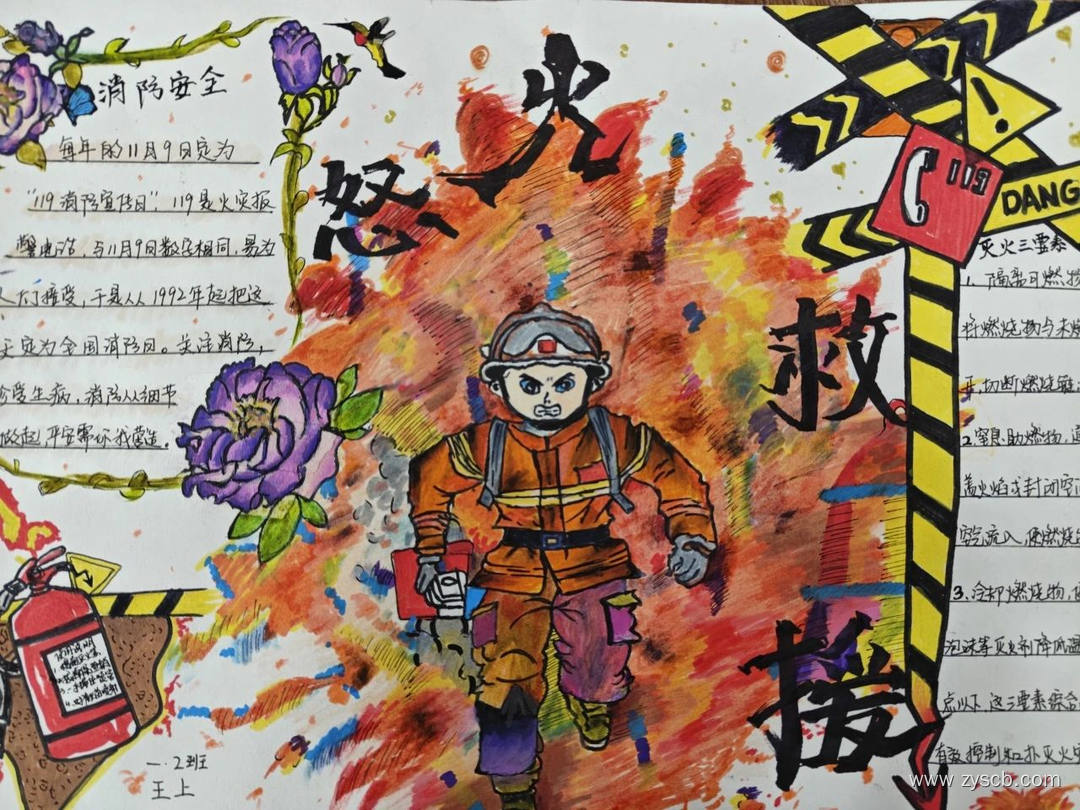 消防安全
每年的11月9日定为
"119消防宣传日". 119是火灾报
警电话, 与11月9日数字相同, 易为
人们接受, 于是从1992年起把这
天定为全国消防日。关注消防,
生病, 消防从细节
做起, 平安需你我营造。
怒火
救援
119
DANG
灭火三要素
1. 隔离可燃物
将燃烧物与未燃
切断燃烧
2 窒息助燃物,
盖火焰或封闭空
空气流入, 使燃烧
3. 冷却燃烧物,
泡沫等灭火剂降低温
点以下, 这三要素综合
有效控制和扑灭火灾
一.2班
王上
www.zyscb.com